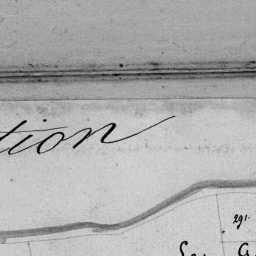 tion
291.